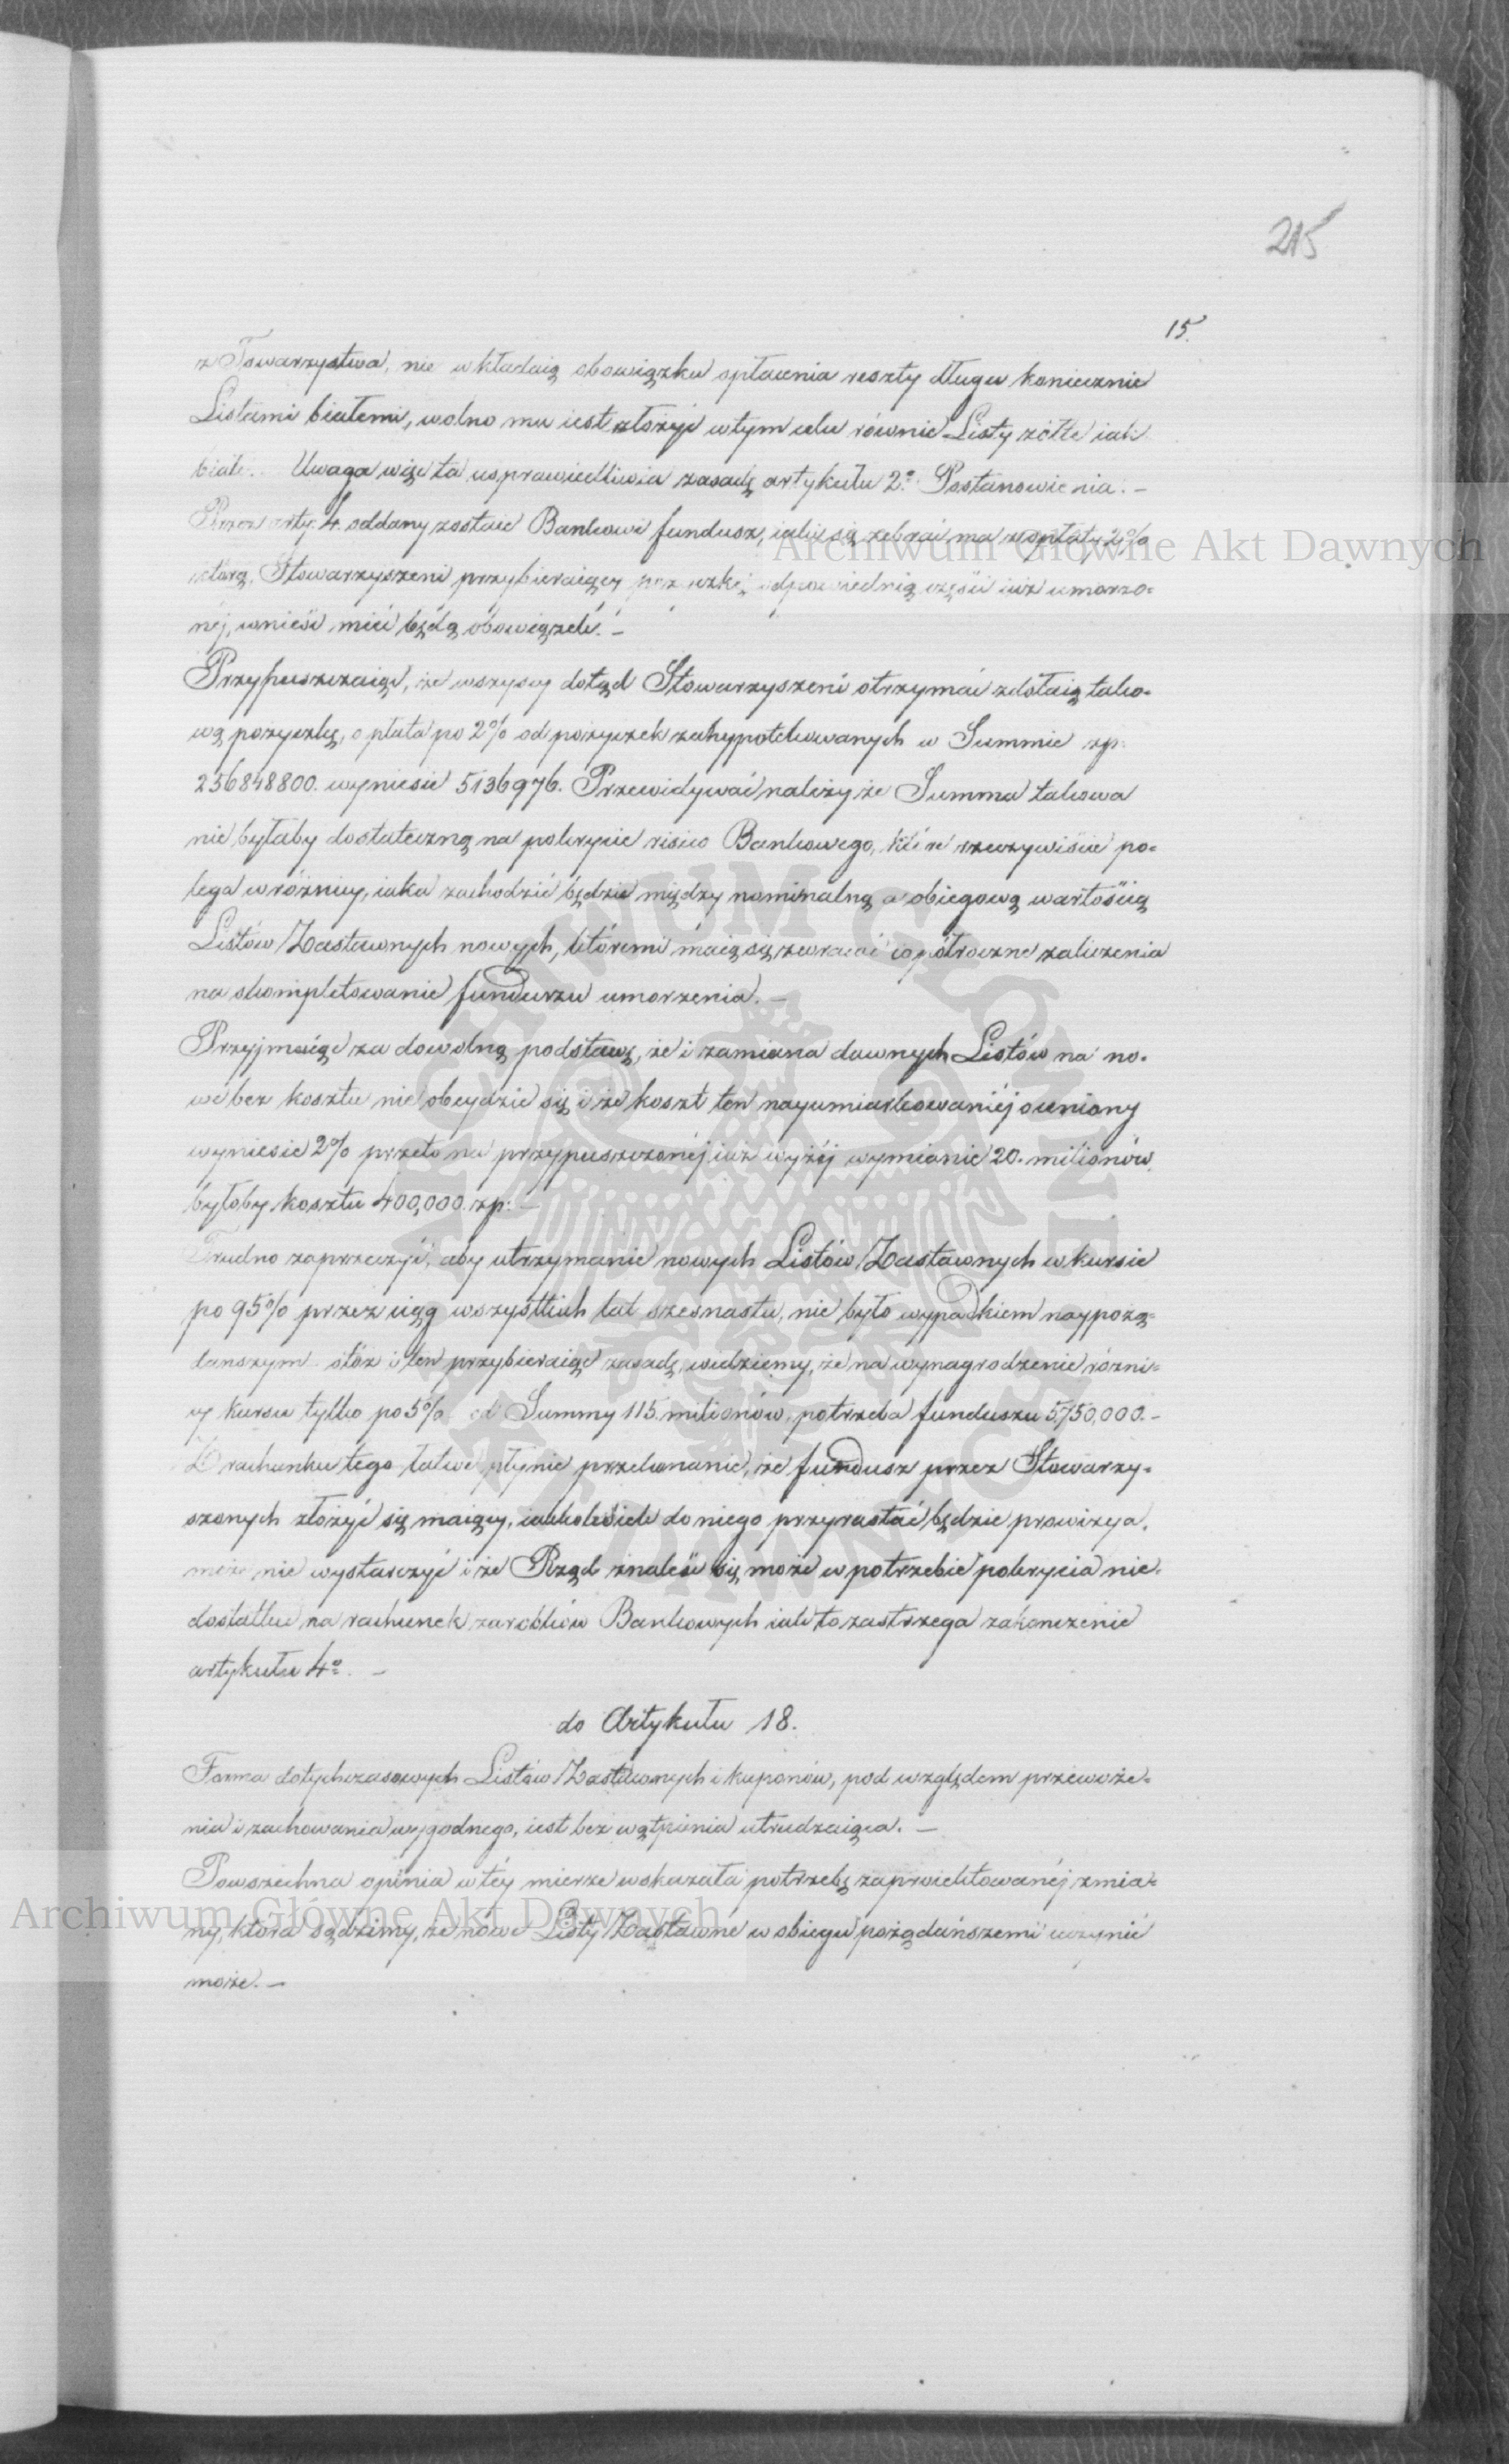 215
15.
z Towarzystwa, nie wkładaią obowiązku opłacenia reszty długu koniecznie
Listami białemi, wolno mu iest złożyć w tym celu równie Listy żółte iak
białe. Uwaga więc ta usprawiedliwia zasadę artykułu 2º Postanowienia. –
Przez arty: 4. oddany zostaie Bankowi fundusz, iaki się zebrać ma z opłaty 2%
którą, Stowarzyszeni przybieraiący pożyczkę odpowiednią części iuż umorzo=
néj, wnieść mieć będą obowiązek. –
Przypuszczaiąc, że wszyscy dotąd Stowarzyszeni otrzymać zdołaią tako=
wą pożyczkę, opłata po 2% od pożyczek zahypotekowanych w Summie zp:
256848800. wyniesie 5136976. Przewidywać należy że Summa takowa
nie byłaby dostateczną na pokrycie risico Bankowego, które rzeczywiście po=
lega w różnicy, iaka zachodzić będzie między nominalną a obiegową wartością
Listów Zastawnych nowych, któremi maią się zwracać copółroczne zaliczenia
na skompletowanie funduszu umorzenia. –
Przyjmuiąc za dowolną podstawę, że i zamiana dawnych Listów na no=
we bez kosztu nie obeydzie się i że koszt ten nayumiarkowaniéj oceniony
wyniesie 2% przeto na przypuszczonéj iuż wyżéj wymianie 20. milionów
byłoby kosztu 400,000. zp: –
Trudno zaprzeczyć, aby utrzymanie nowych Listów Zastawnych w kursie
po 95% przez ciąg wszystkich lat szesnastu, nie było wypadkiem naypożą=
dańszym otóż i ten przybieraiąc zasadę, widziemy, że na wynagrodzenie różni=
cy kursu tylko po 5% od Summy 115. milionów, potrzeba funduszu 5,750,000. –
Z rachunku tego łatwo płynie przekonanie, że fundusz przez Stowarzy=
szonych złożyć się maiący, iakkolwiek do niego przyrastać będzie prowizya,
może nie wystarczyć i że Rząd znaleść się może w potrzebie pokrycia nie=
dostatku na rachunek zarobków Bankowych iak to zastrzega zakończenie
artykułu 4º. –
do Artykułu 18.
Forma dotychczasowych Listów Zastawnych i kuponów, pod względem przewoże=
nia i zachowania wygodnego, iest bez wątpienia utrudzaiąca. –
Powszechna opinia w téy mierze wskazała potrzebę zaproiektowanéj zmia=
ny, która sądzimy, że nowe Listy Zastawne w obiegu pożądańszemi uczynić
może. –
Archiwum Główne Akt Dawnych
Archiwum Główne Akt Dawnych
ARCHIWUM GŁÓWNE AKT DAWNYCH